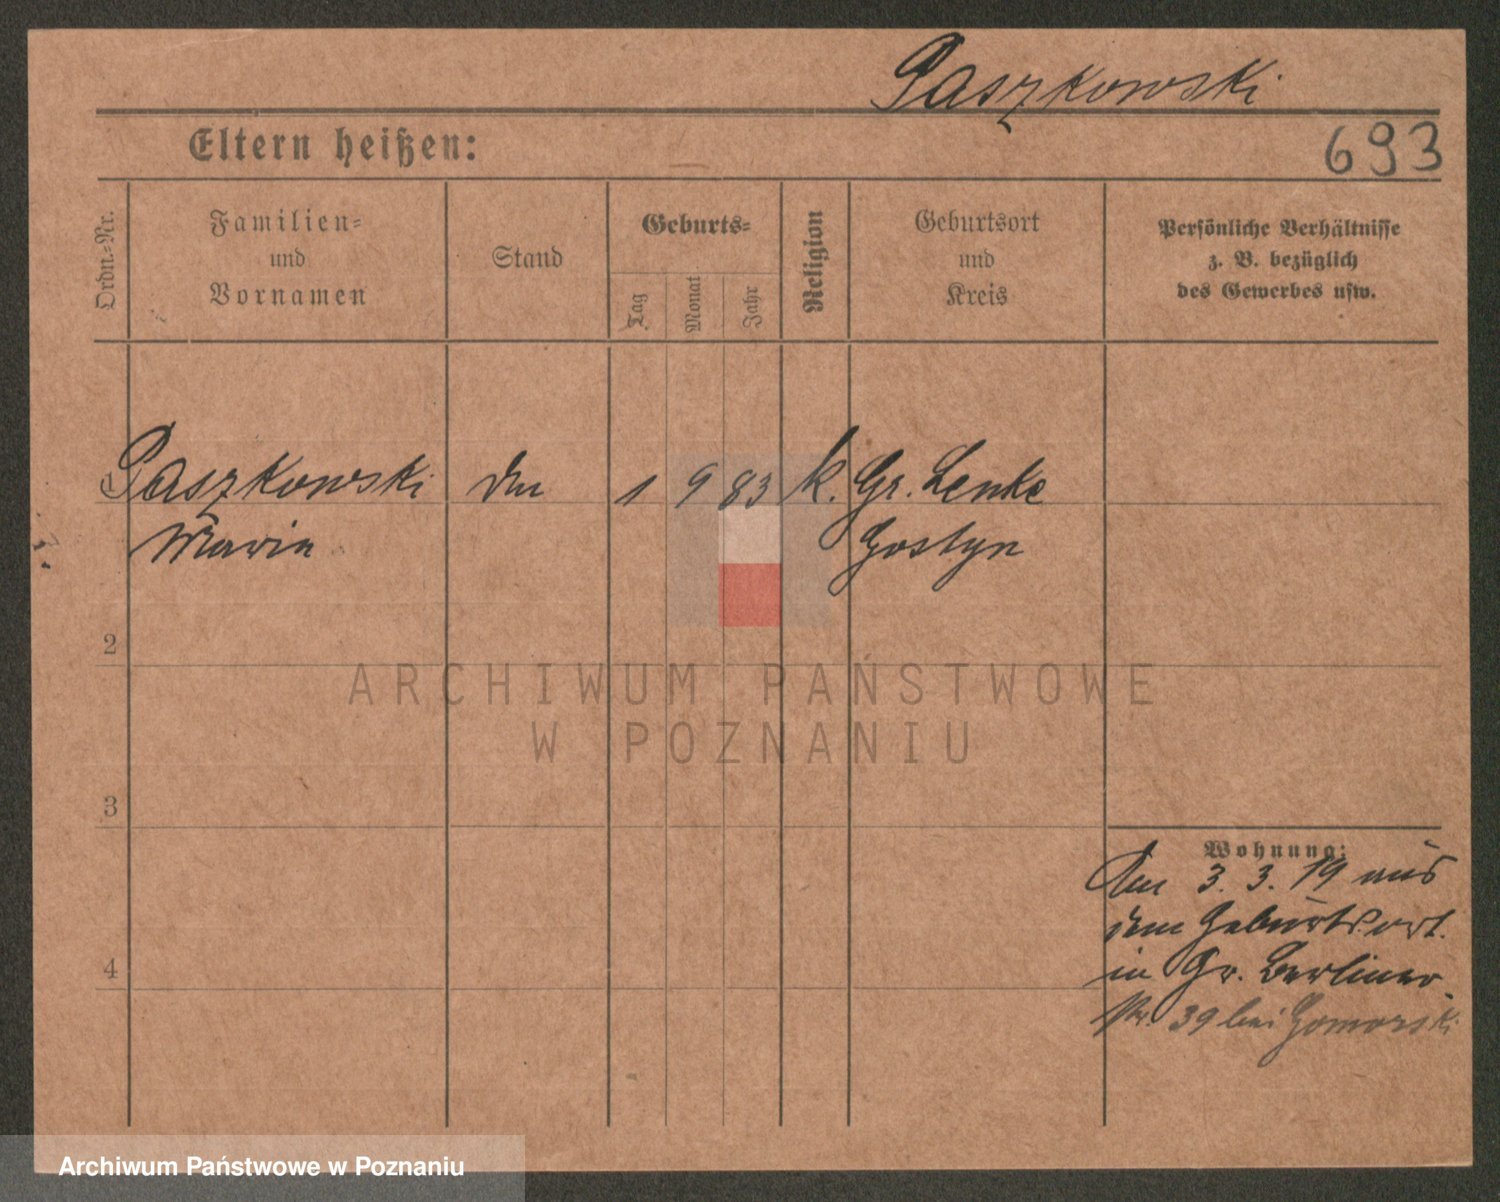 Paszkowski
Eltern heißen:
693
Ordn.-Nr.
Familien-
und
Vornamen
Stand
Geburts-
Tag
Monat
Jahr
Religion
Geburtsort
und
Kreis
Persönliche Verhältnisse
z. B. bezüglich
des Gewerbes usw.
1 Paszkowski 1 9 83 k. Gr. Lenke
Maria Gostyn
2
ARCHIWUM PAŃSTWOWE
W POZNANIU
3
Wohnung:
Am 3. 3. 19 aus
dem Geburtsort.
4
in Gr. Berliner
str. 39 bei Gomorski
Archiwum Państwowe w Poznaniu